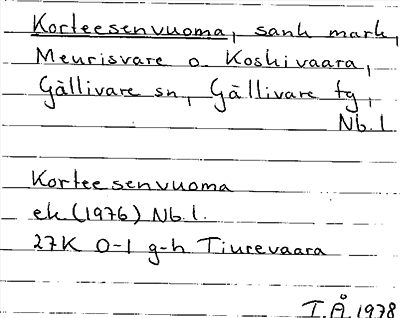 Korteesenvuoma, sank mark,
Meurisvare o. Koskivaara,
Gällivare sn, Gällivare tg,
Nb. l.
Kortee senvuoma
ek (1976) Nb. l.
27K 0-1 g-h Tiurevaara
T.Å. 1978